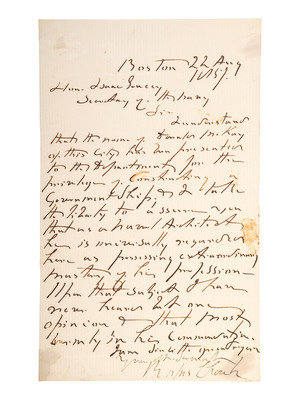 Boston 22 Aug
1857
Hon. Isaac Toucey
Secretary of the Navy
Sir
I understand
that the name of Donald McKay
of this City has been presented
to the Department for the
privilege of Constructing a
Government Ship, & I take
the liberty to assure you
that as a Naval Architect
he is universally regarded
here as possessing extraordinary
mastery of his profession
Upon that subject I have
never heard but one
opinion & that most
warmly in his Commendation.
I am Sir with great regard
Your
Rufus Choate